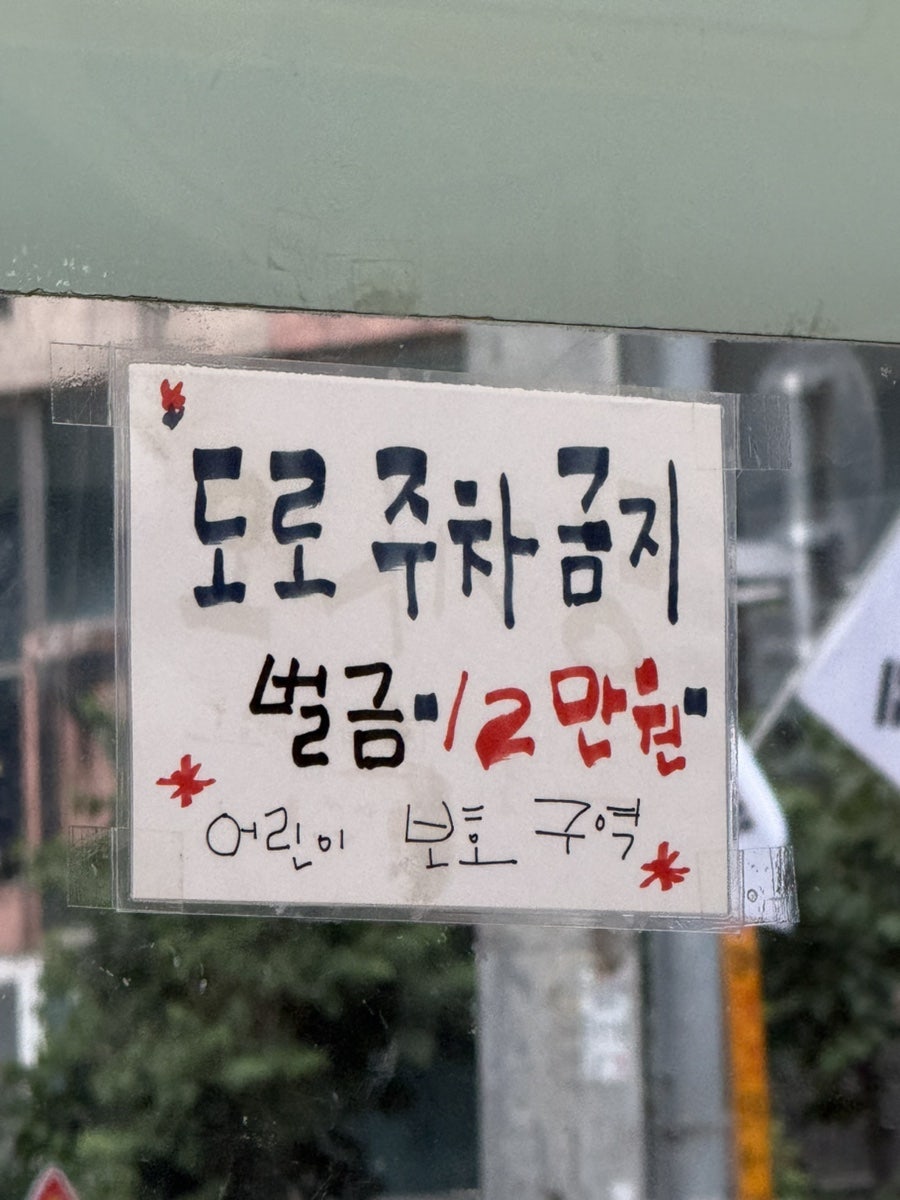 도로 주차 금지
벌금 "12만원"
어린이 보호 구역